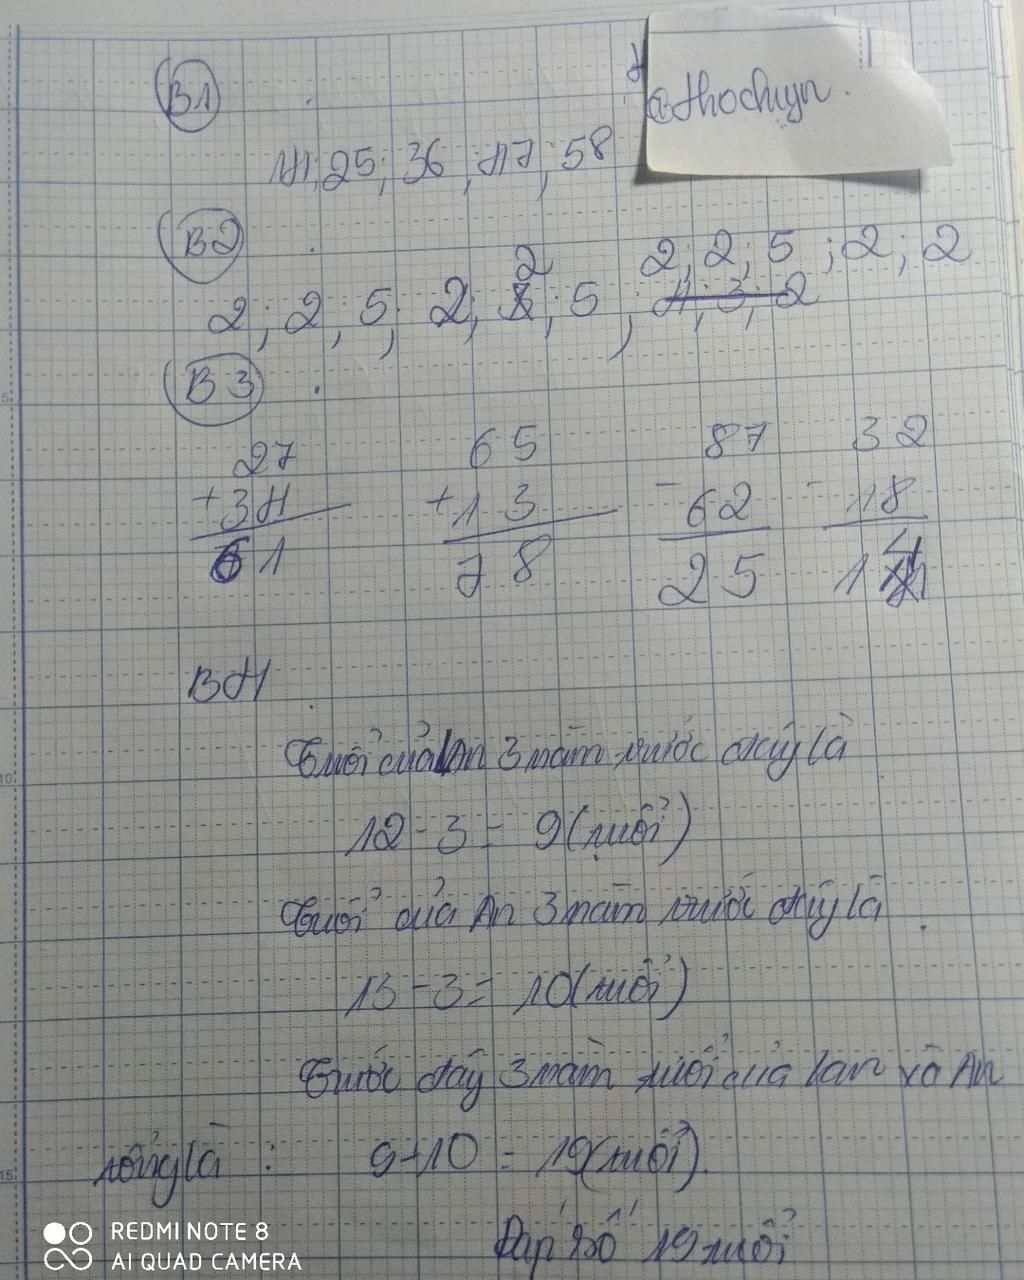 @thochuyn.
B1
14; 25; 36; 47; 58
B2
2; 2; 5; 2; 2
2; 2; 5; 2; 2; 5; 4; 3; 2
B3
27 65 87 32
+34 +13 -62 -18
61 78 25 14
B4
Tuổi của An 3 năm trước đây là
12 - 3 = 9 (tuổi)
Tuổi của An 3 năm trước đây là
13 - 3 = 10 (tuổi)
Trước đây 3 năm tuổi của lan và An
tổng là : 9+10 = 19 (tuổi).
Đáp số 19 tuổi
REDMI NOTE 8
AI QUAD CAMERA